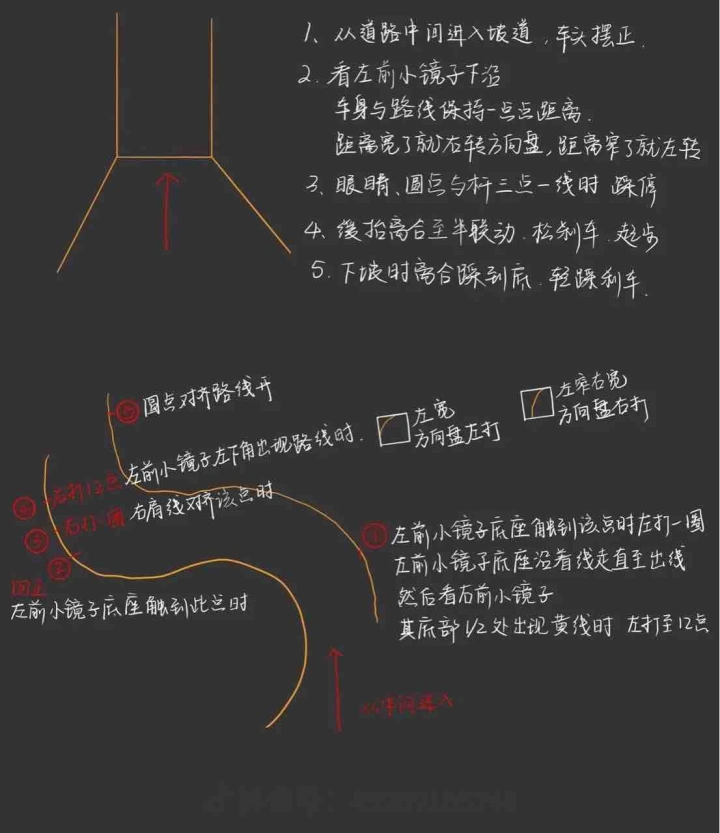 1、从道路中间进入坡道，车头摆正.
2. 看左前小镜子下沿
车身与路线保持一点点距离.
距离宽了就右转方向盘，距离窄了就左转
3、眼睛、圆点与杆三点一线时 踩停
4、缓抬离合至半联动. 松刹车. 起步
5. 下坡时离合踩到底. 轻踩刹车.
⑤ 圆点对齐路线开
左宽
方向盘左打
左窄右宽
方向盘右打
左前小镜子左下角出现路线时.
④ 右打12点
③ 右打一圈
右肩线对齐该点时
②
回正
左前小镜子底座触到此点时
① 左前小镜子底座触到该点时左打一圈
左前小镜子底座沿着线走直至出线
然后看右前小镜子
其底部1/2处出现黄线时 左打至12点
从中间进入